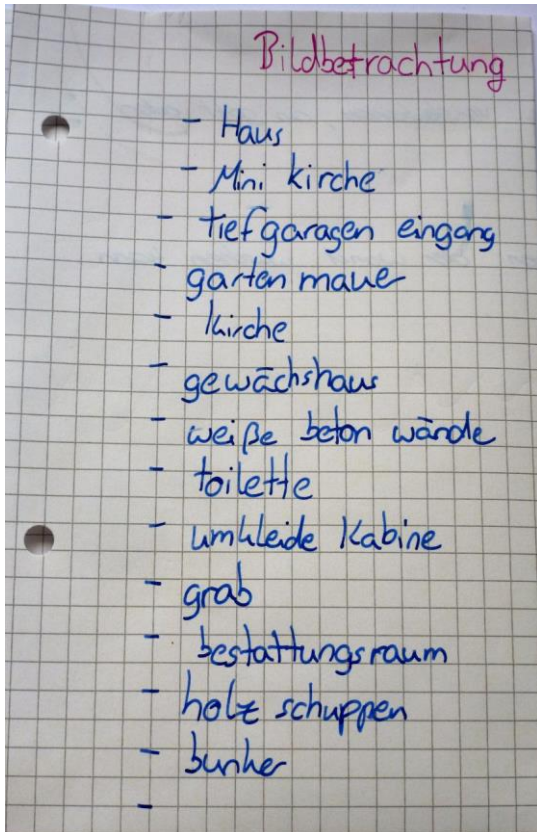 Bildbetrachtung
- Haus
- Mini kirche
- tiefgaragen eingang
- garten mauer
- kirche
- gewächshaus
- weiße beton wände
- toilette
- umkleide Kabine
- grab
- bestattungsraum
- holz schuppen
- bunker
-